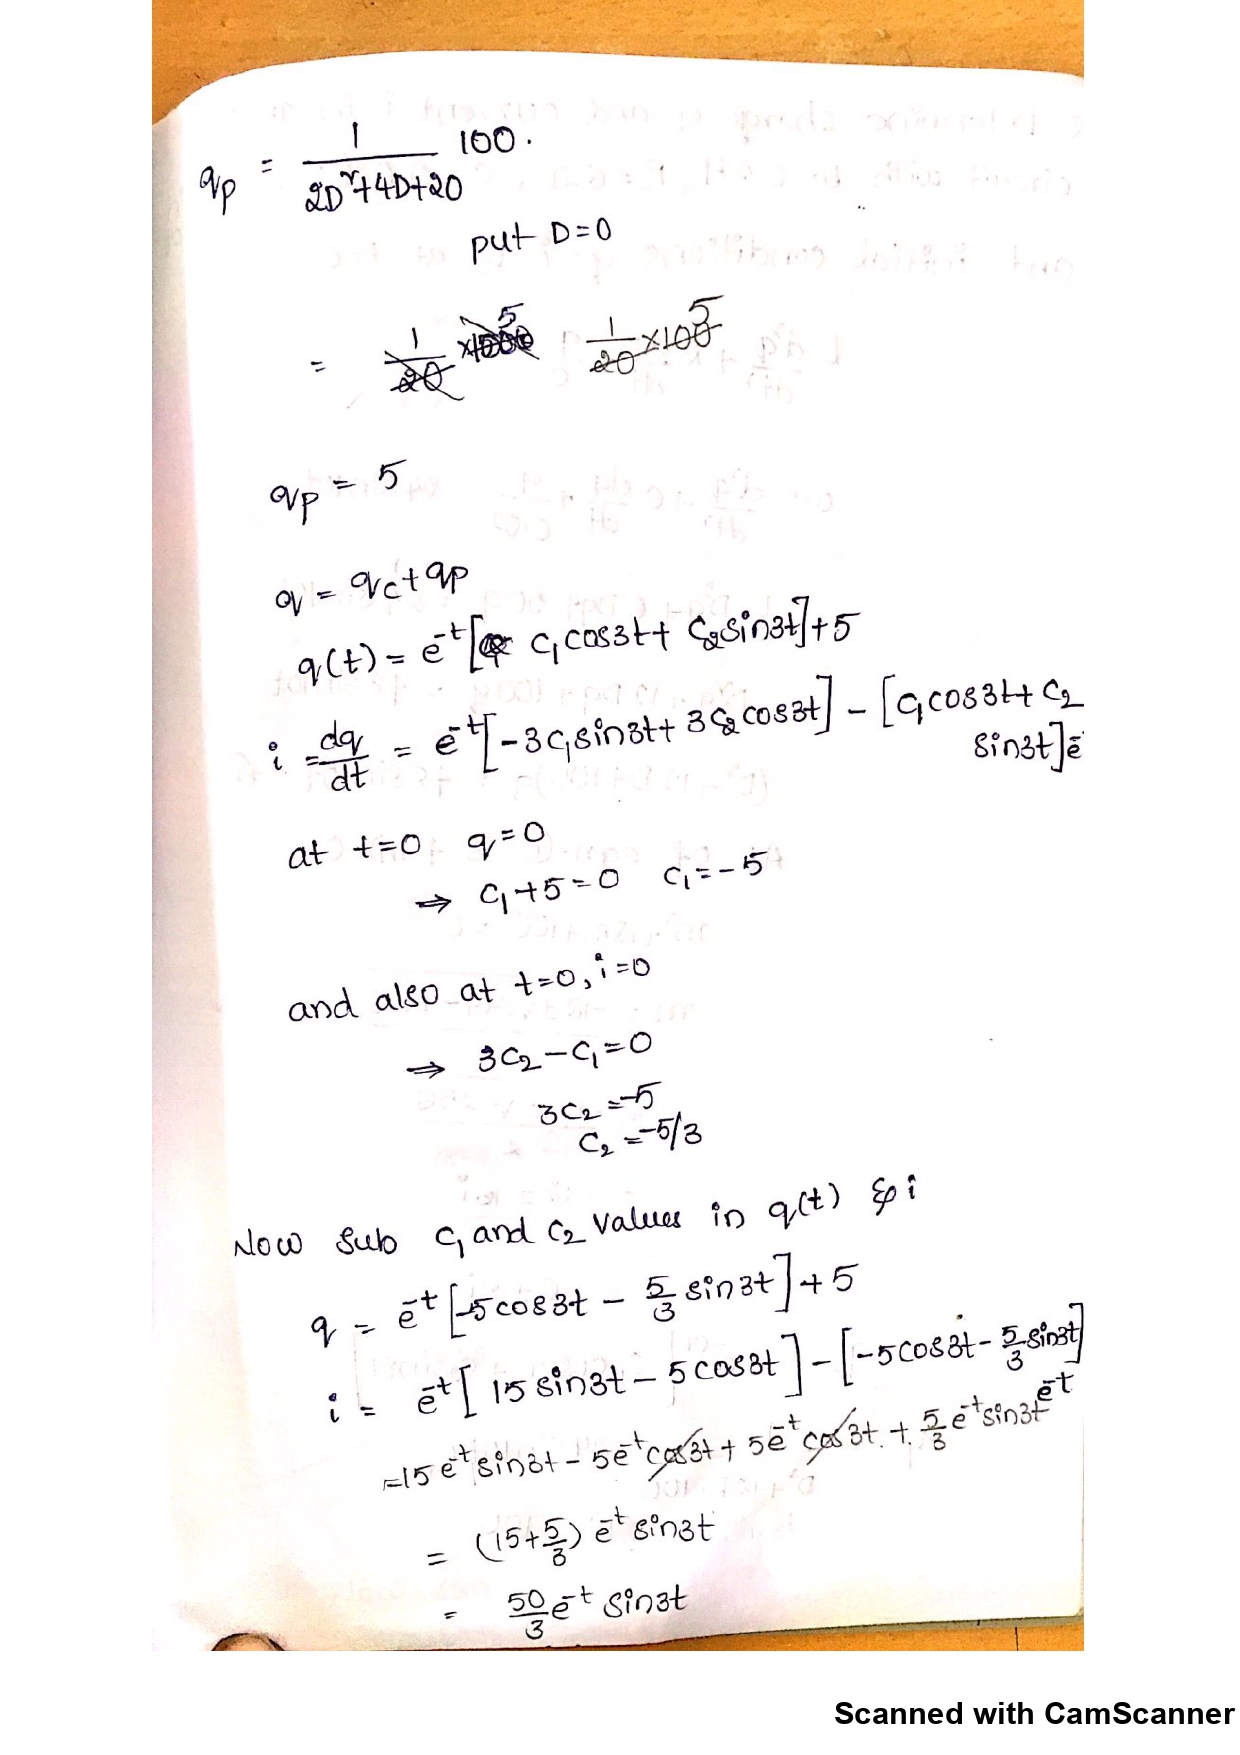 qp = 1/(2D²+4D+20) 100.
put D=0
= 1/20 × 100 5
qp = 5
q = qc + qp
q(t) = e^-t [c₁cos3t + c₂sin3t] + 5
i = dq/dt = e^-t [-3c₁sin3t + 3c₂cos3t] - [c₁cos3t + c₂
sin3t]e^-
at t=0 q=0
⇒ c₁+5=0 c₁=-5
and also at t=0, i=0
⇒ 3c₂-c₁=0
3c₂=-5
c₂=-5/3
Now sub c₁ and c₂ values in q(t) & i
q = e^-t [-5cos3t - 5/3 sin3t] + 5
i = e^-t [15sin3t - 5cos3t] - [-5cos3t - 5/3 sin3t] e^-t
=15e^-t sin3t - 5e^-t cos3t + 5e^-t cos3t + 5/3 e^-t sin3t
= (15+5/3) e^-t sin3t
= 50/3 e^-t sin3t
Scanned with CamScanner